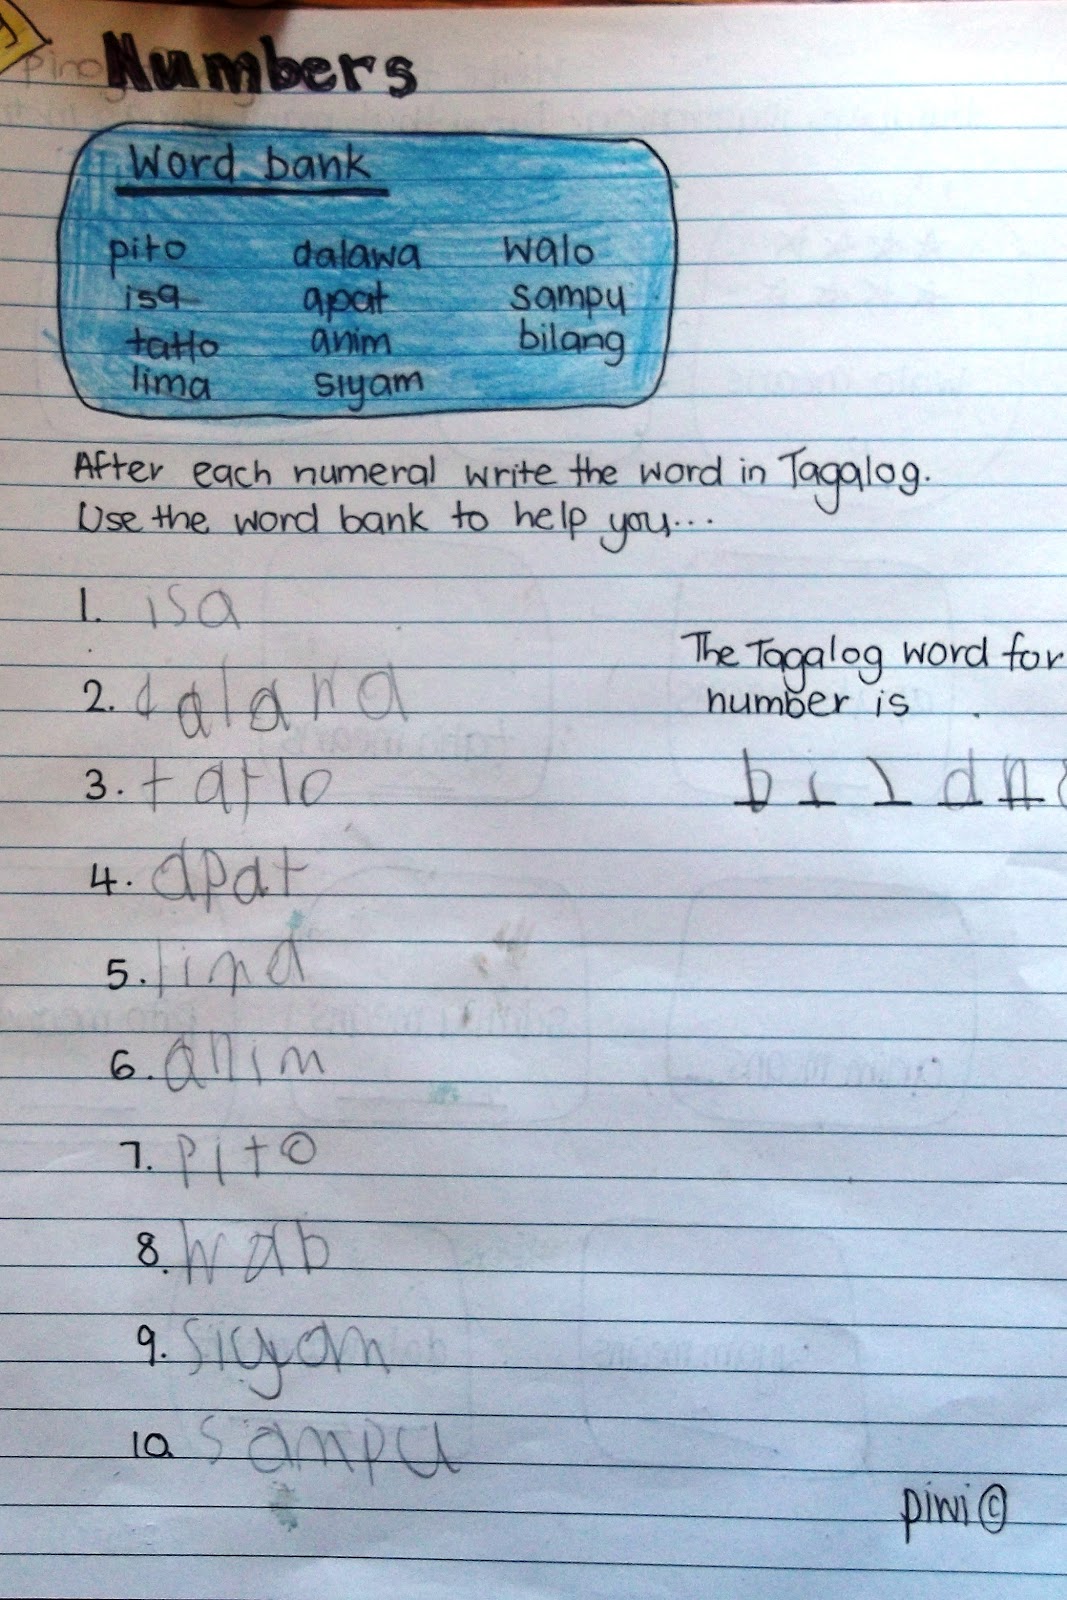 Numbers
Word bank
pito dalawa walo
isa apat sampu
tatlo anim bilang
lima siyam
After each numeral write the word in Tagalog.
Use the word bank to help you...
1. isa
The Tagalog word for
number is .
2. dalawa
3. tatlo
b i l a n
4. apat
5. lima
6. anim
7. pito
8. walo
9. siyam
10. sampu
piwi ©